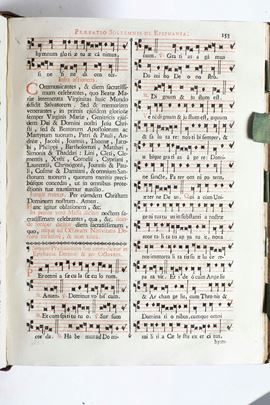 PRÆFATIO SOLEMNIS DE EPIPHANIA. 153
hymnum gloriæ tuæ ca nimus
si ne fi ne di cen tes.
Communicantes, & diem sacratissi-
mum celebrantes, quo Beatæ Ma-
riæ intemerata Virginitas huic Mundo
edidit Salvatorem, Sed & memoriam
venerantes, in primis ejusdem gloriosæ
semper Virginis Mariæ, Genitricis ejus-
dem Dei & Domini nostri Jesu Chri-
sti, sed & Beatorum Apostolorum ac
Martyrum tuorum, Petri & Pauli, An-
dreæ, Jacobi, Joannis, Thomæ, Jaco-
bi, Philippi, Bartholomæi, Matthæi,
Simonis & Thaddæi: Lini, Cleti, Cle-
mentis, Xysti, Cornelii, Cypriani,
Laurentii, Chrysogoni, Joannis & Pau-
li, Cosmæ & Damiani, & omnium San-
ctorum tuorum, quorum meritis preci-
busque concedas, ut in omnibus prote-
ctionis tuæ muniamur auxilio.
Per eumdem Christum
Dominum nostrum. Amen.
Hanc igitur oblationem, &c.
Per omni a sæ cu la sæ cu lo rum.
Amen. Dominus vo bis cum.
Et cum spiri tu tu o. Sur sum
cor da. Ha be mus ad Do mi-
num. Gra ti as a gá mus
Do mi no De o no stro.
Di gnum & ju stum est.
Ve re dignum & ju stum est, æquum
& sa lu ta re: nos ti bi semper, &
u bique gra ti as a ge re: Domi-
ne sancte, Pa ter om ni po tens,
æ ter ne De us: Qui a cum Uni-
ge ni tus tu us in substanti a nostræ
mor ta li ta tis ap pa ru it, no va
nos immorta li ta tis su æ lu ce re-
pa ra vit. Et i de o cum Ange lis
& Ar chan ge lis, cum Thro nis &
Domina ti o nibus, cumque omni
mi li ti a Cæ le stis ex er ci tus,
hym-